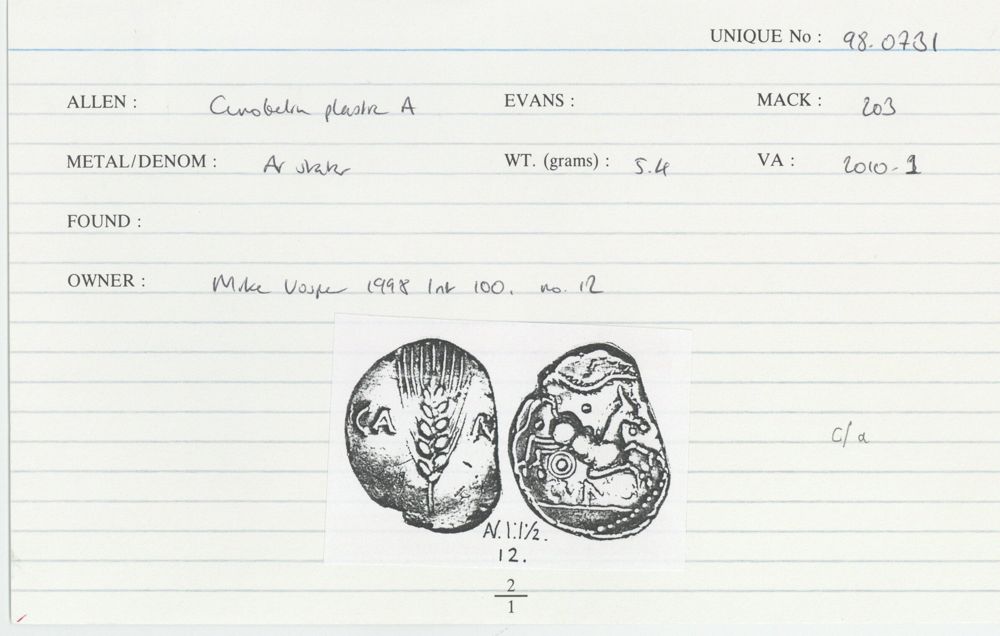 UNIQUE No : 98.0731
ALLEN : Cunobelin plastic A EVANS : MACK : 203
METAL/DENOM : AV stater WT. (grams) : 5.4 VA : 2010-1
FOUND :
OWNER : Mike Vosper 1998 list 100. no. 12
CA
AV. 1:1½.
12.
2
1
C/a